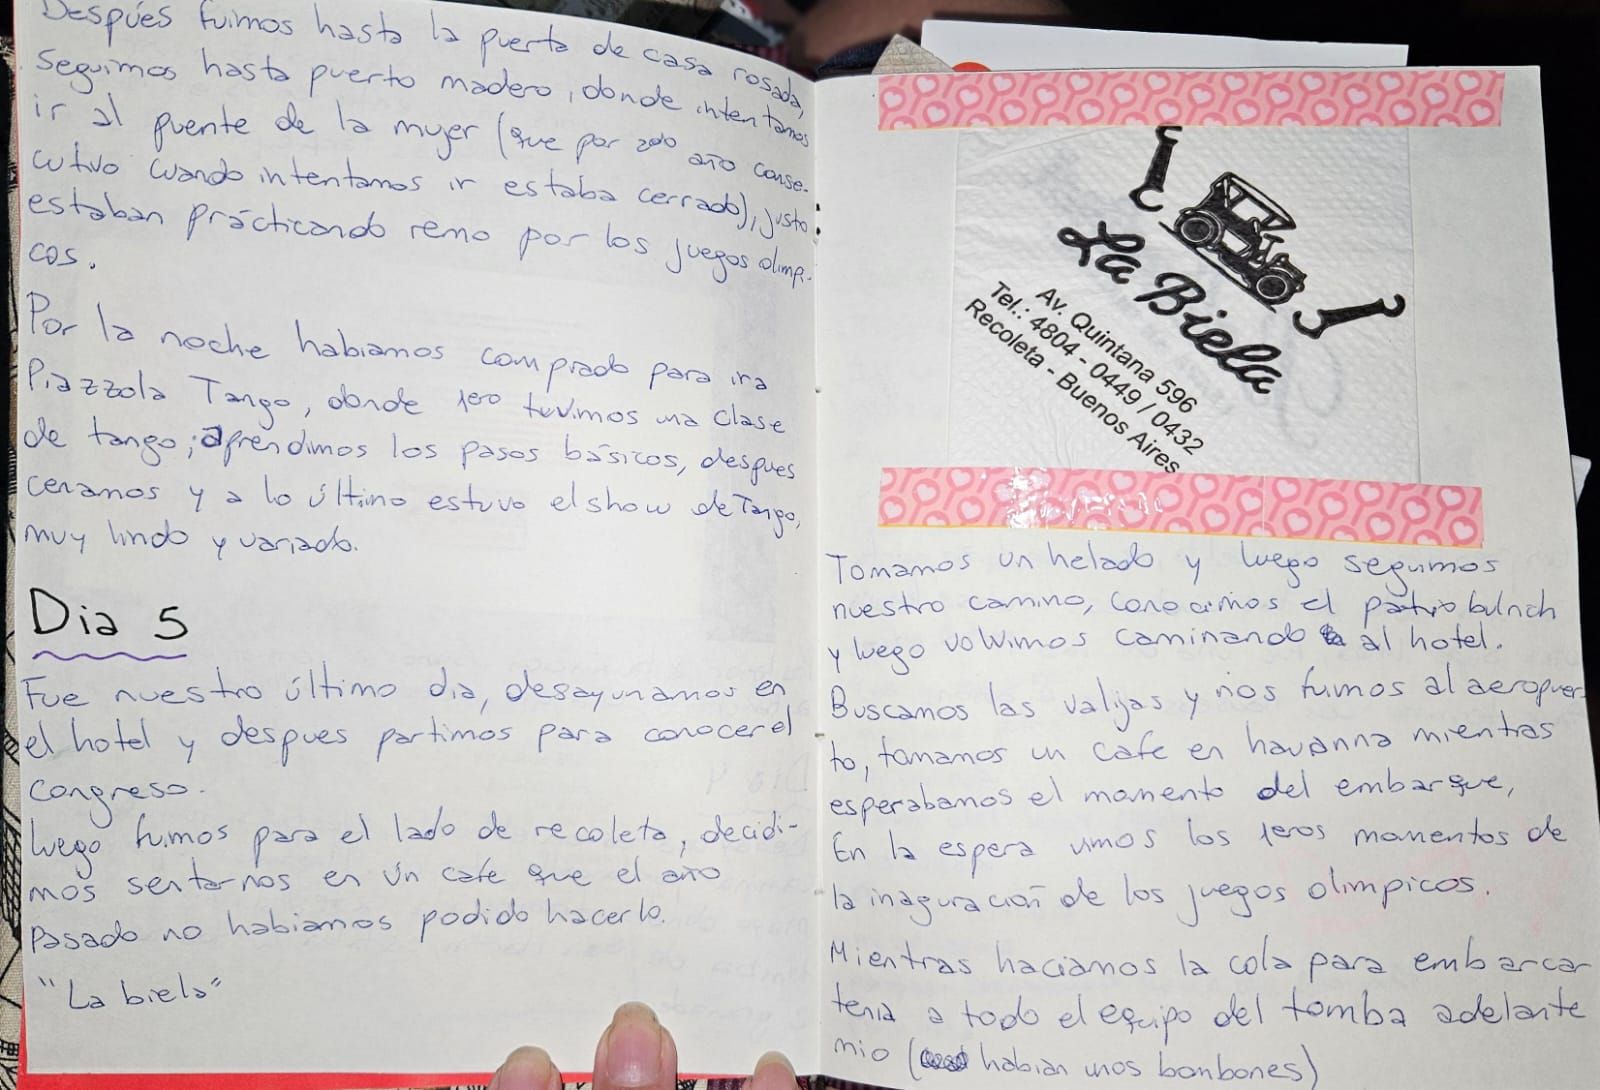 Después fuimos hasta la puerta de casa rosada,
seguimos hasta puerto madero, donde intentamos
ir al puente de la mujer (que por 2do año conse-
cutivo cuando intentamos ir estaba cerrado), justo
estaban prácticando remo por los juegos olimpi-
cos.
Por la noche habiamos comprado para ir a
Piazzola Tango, donde 1ero tuvimos una clase
de tango; aprendimos los pasos básicos, despues
cenamos y a lo último estuvo el show de Tango,
muy lindo y variado.
Dia 5
Fue nuestro último dia, desayunamos en
el hotel y despues partimos para conocer el
congreso.
luego fuimos para el lado de recoleta, decidi-
mos sentarnos en un cafe que el año
pasado no habiamos podido hacerlo.
"La biela"
La Biela
Av. Quintana 596
Tel.: 4804 - 0449 / 0432
Recoleta - Buenos Aires
Tomamos un helado y luego seguimos
nuestro camino, conocimos el patio bulrich
y luego volvimos caminando al hotel.
Buscamos las valijas y nos fuimos al aeropuer-
to, tomamos un cafe en havanna mientras
esperabamos el momento del embarque,
En la espera vimos los 1eros momentos de
la inaguración de los juegos olimpicos.
Mientras haciamos la cola para embarcar
tenia a todo el equipo del tomba adelante
mio (habian unos bonbones)